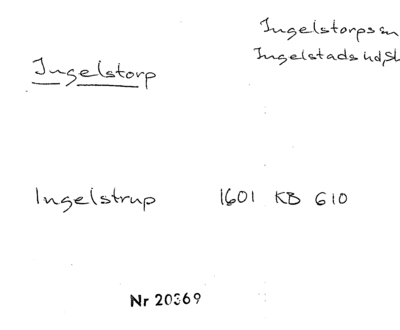 Ingelstorps sn
Ingelstads hd, Sk
Ingelstorp
Ingelstrup 1601 KB 610
Nr 20369